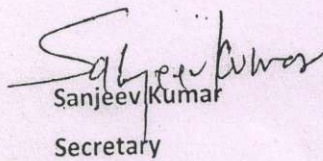 Sanjeev Kumar
Sanjeev Kumar
Secretary